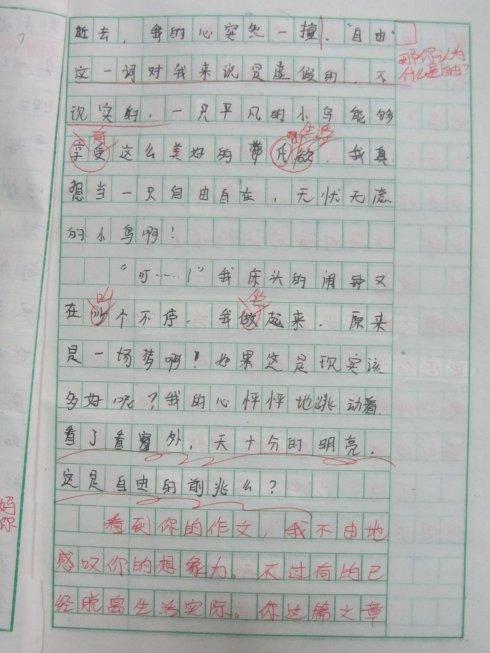 近去，我的心突然一撞，"自由"
这一词对我来说是虚假的，不
现实的，一只平凡的小鸟能够
享受这么美好的，我真
想当一只自由自在，无忧无虑
的小鸟啊！
"叮……！"我床头的闹钟又
在个不停，我做起来，原来
是一场梦啊！如果这是现实该
多好呢？我的心怦怦地跳动着，
看了看窗外，天十分的明亮，
这是自由的前兆么？
看到你的作文，我不由地
感叹你的想象力。不过有的已
经脱离生活实际。你这篇文章
那你认为
什么是自由？
有
生活
叫
坐
妈
你